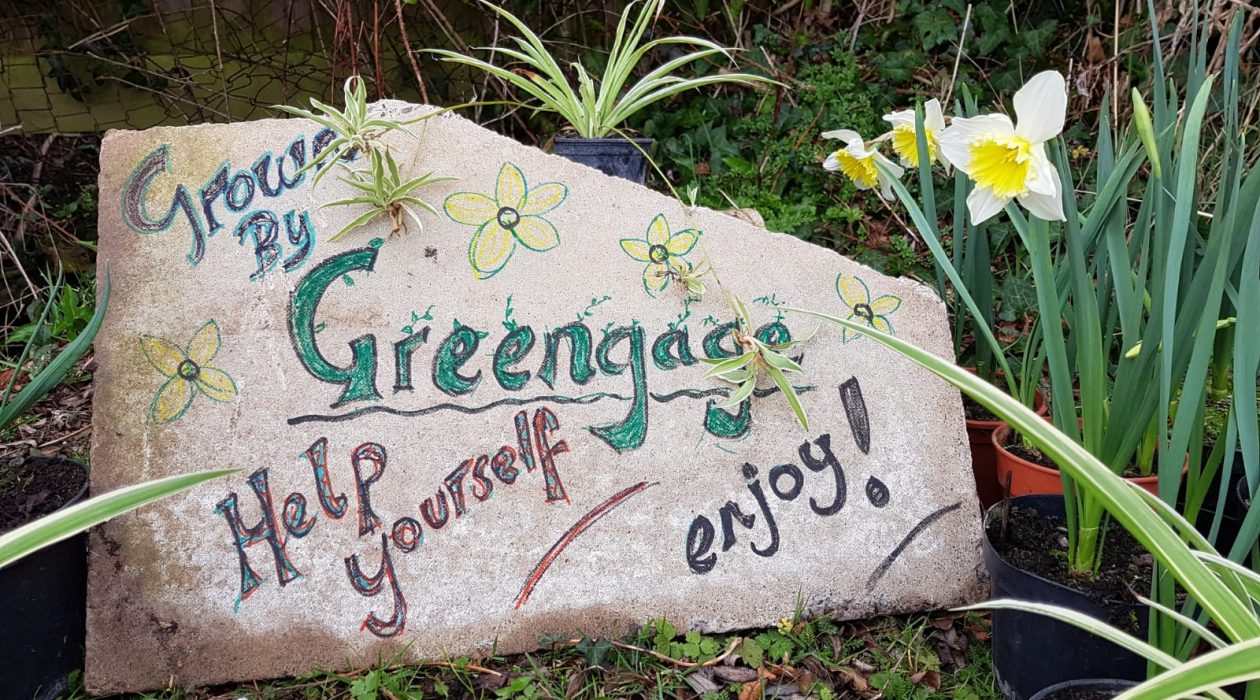 Grown
By
Greengage
Help
yourself
enjoy!